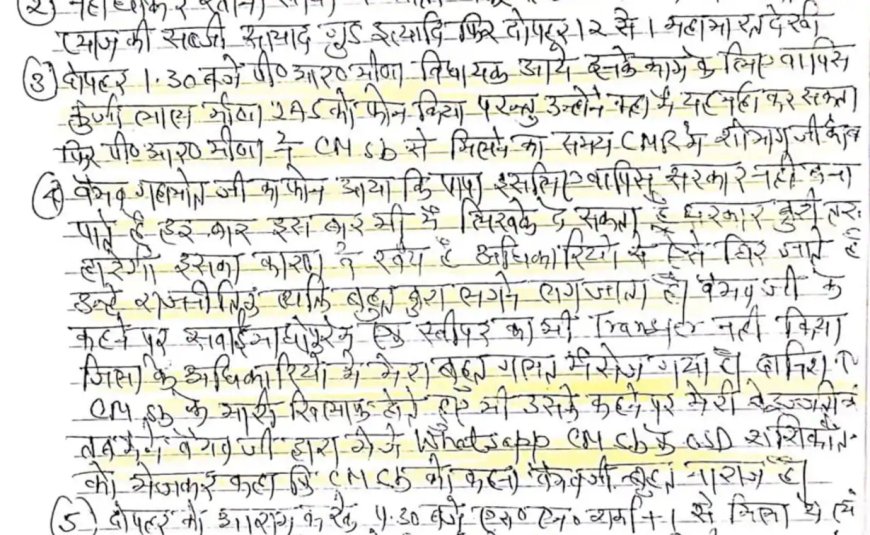 प्याज की सब्जी सायाद गुड इत्यादि फिर दोपहर 12 से 1 महाभारत देखी
(3) दोपहर 1.30 बजे पी० आर० मीणा विधायक आये इनके काम के लिए वापिस
कुंजी लाल मीणा IAS को फोन किया परन्तु उन्होने कहा मैं यह नही कर सकता
फिर पी० आर० मीणा ने CM Sb से मिलने का समय CMR में
(4) वैभव गहलोत जी का फोन आया कि पापा इसलिए वापिस सरकार नही बना
पाते है हर बार इस बार भी मैं लिखके दे सकता हूँ सरकार बुरी तरह
हारेगी इसका कारण वे स्वंय है अधिकारियो से ऐसे घिर जाते है
उन्हे राजनीतिक व्यक्ति बहुत बुरा लगने लग जाता है। वैभव जी के
कहने पर सवाईमाधोपुर में एक स्वीपर का भी Transfer नही किया
जिला के अधिकारियो में मेरा बहुत गलत मैसेज गया है।
CM Sb के खिलाफ होते हुए भी उसके कहने पर मेरी
तब मैने वैभव जी द्वारा भेजे Whatsapp CM Sb के OSD शशिकांत
को भेजकर कहा कि CM Sb को कहना वैभव जी बहुत नाराज है।
(5) दोपहर को आराम करके 4.30 बजे एस० एन० शर्मा +1 से मिला